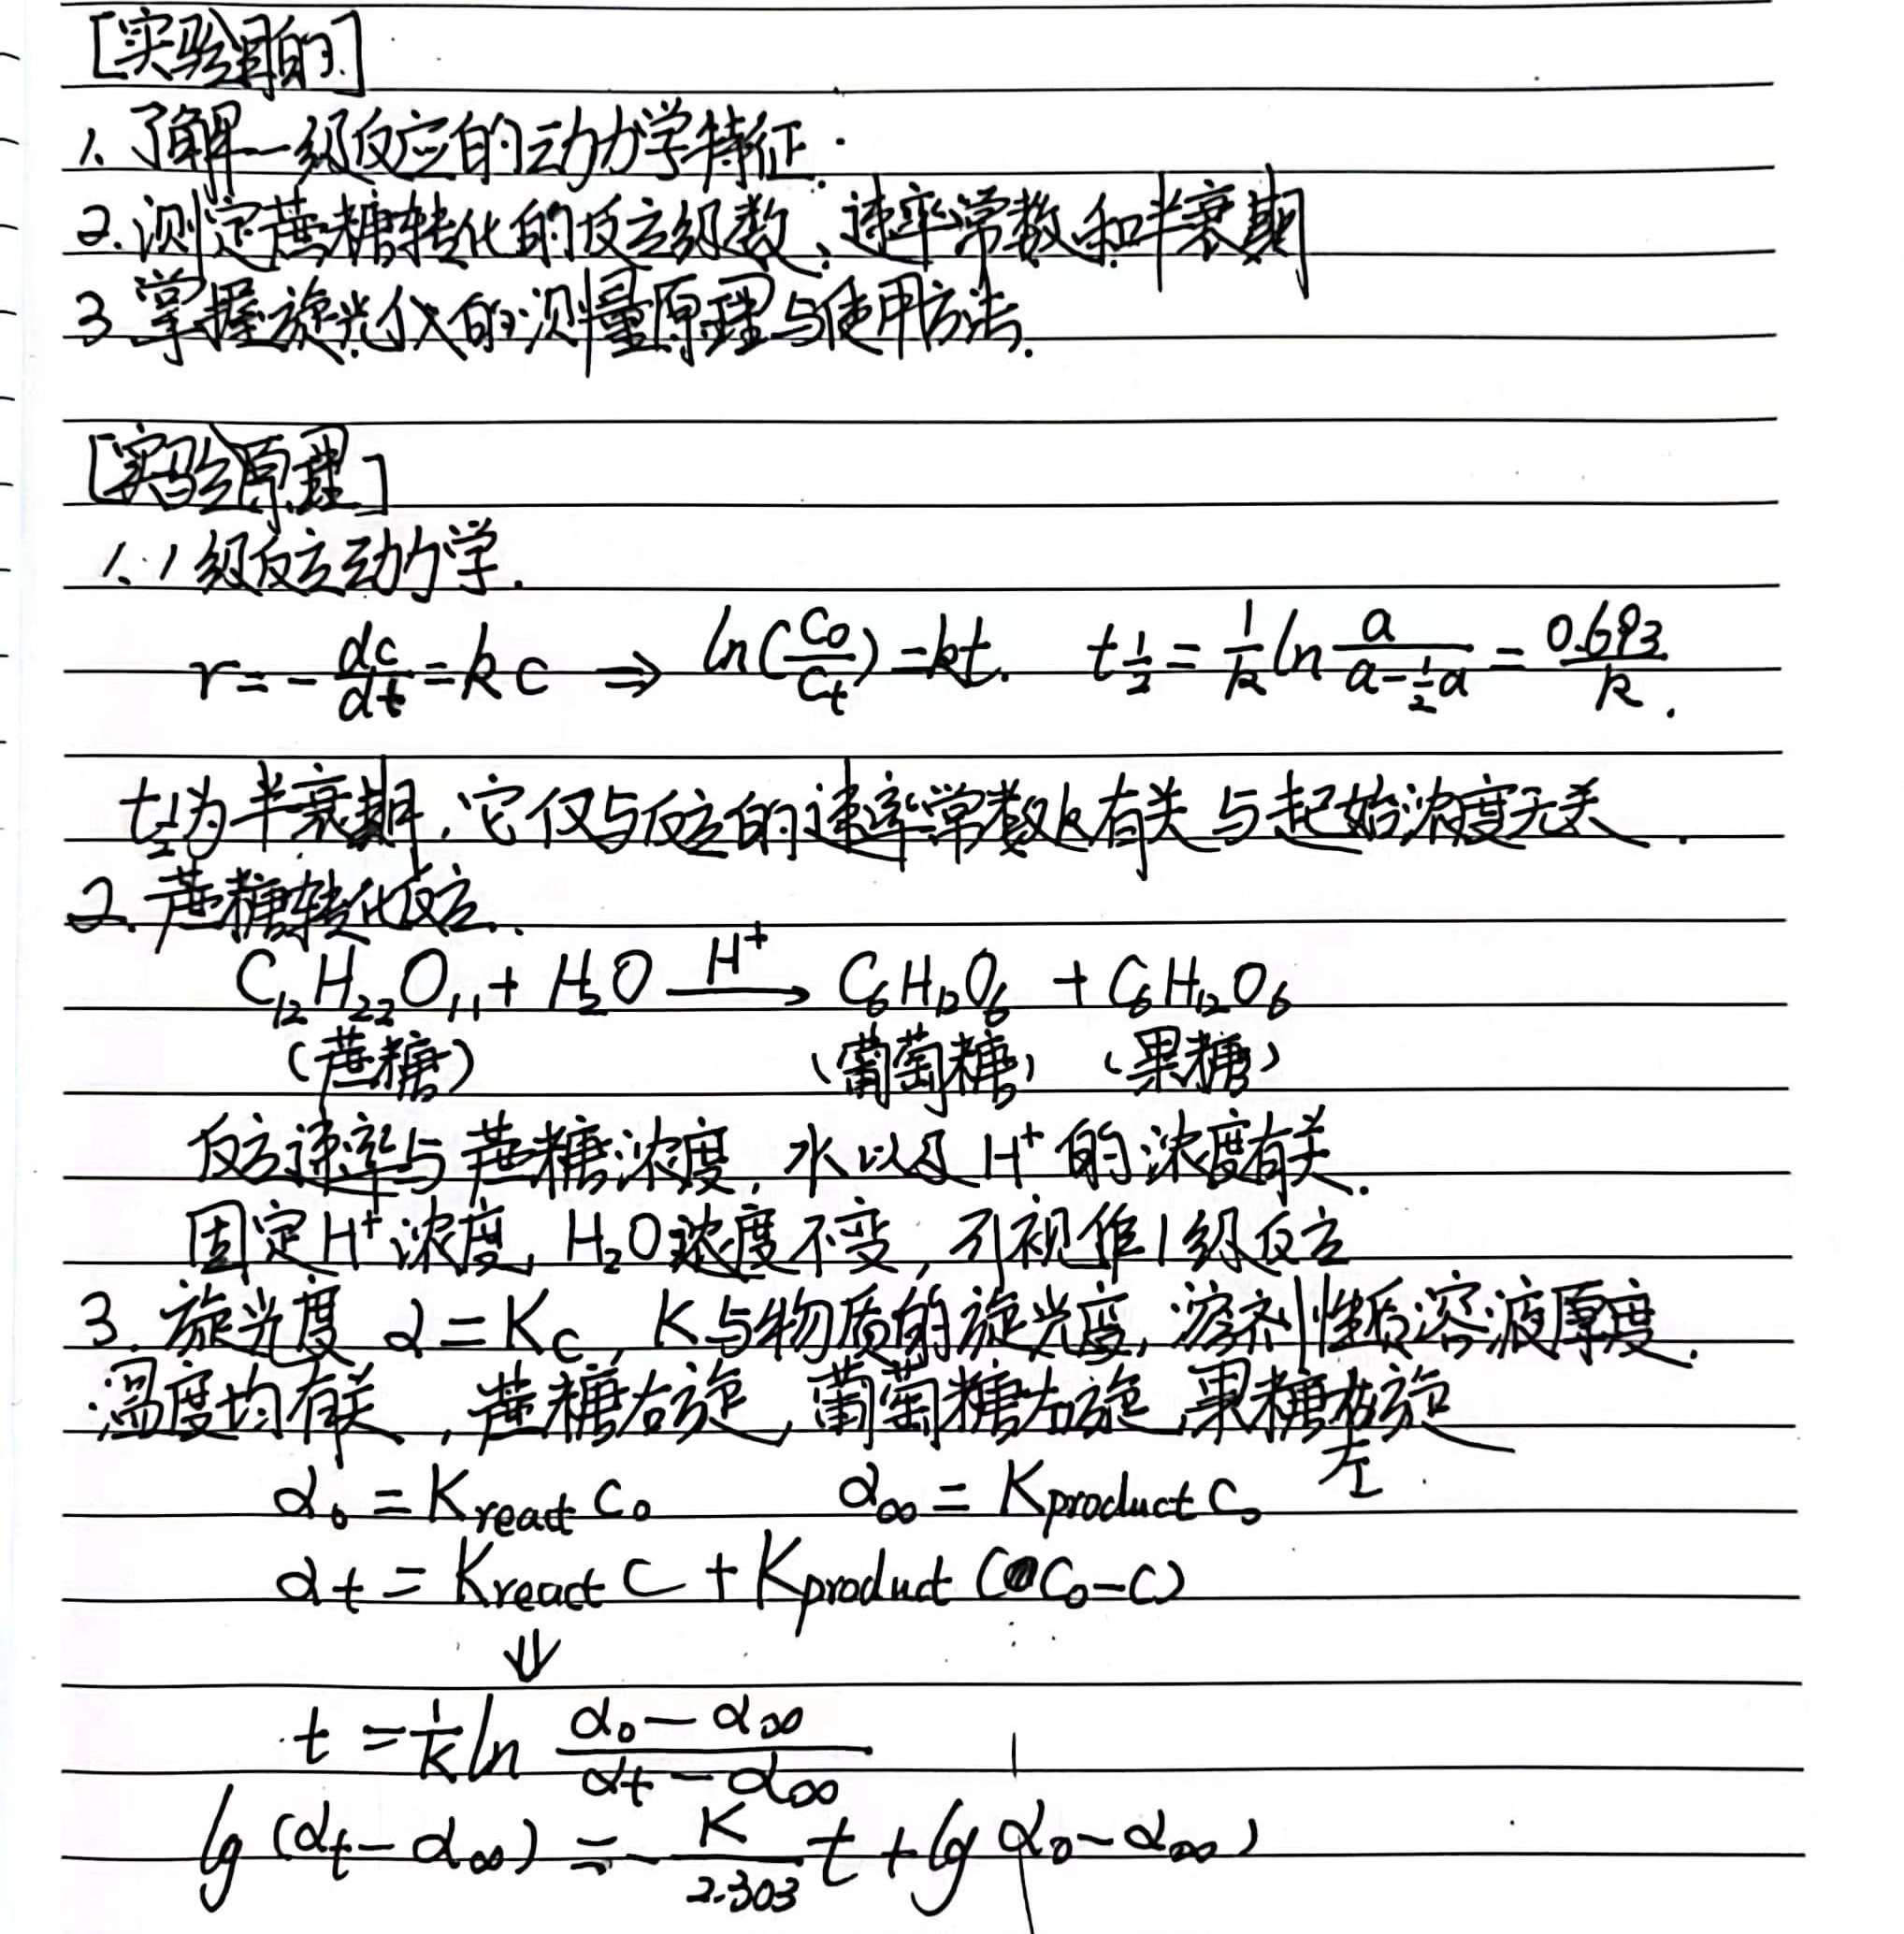 [实验目的]
1. 了解一级反应的动力学特征.
2. 测定蔗糖转化的反应级数、速率常数和半衰期
3. 掌握旋光仪的测量原理与使用方法.
[实验原理]
1. 1级反应动力学.
r = -dc/dt = kc ⇒ ln(c₀/cₜ) = kt. t½ = 1/k ln a/(a-½a) = 0.693/k.
t½为半衰期,它仅与反应的速率常数k有关与起始浓度无关.
2. 蔗糖转化反应.
C₁₂H₂₂O₁₁ + H₂O —H⁺→ C₆H₁₂O₆ + C₆H₁₂O₆
(蔗糖) (葡萄糖) (果糖)
反应速率与蔗糖浓度,水以及H⁺的浓度有关.
固定H⁺浓度,H₂O浓度不变,可视作1级反应
3. 旋光度 α=Kc, K与物质的旋光度,溶剂性质溶液厚度.
温度均有关,蔗糖右旋,葡萄糖右旋,果糖旋
左
α₀ = Kreact c₀ α∞ = Kproduct c₀
αt = Kreact C + Kproduct (C₀-C)
⇓
t = 1/k ln (α₀-α∞)/(αt-α∞)
lg (αt-α∞) = -K/2.303 t + lg α₀-α∞)